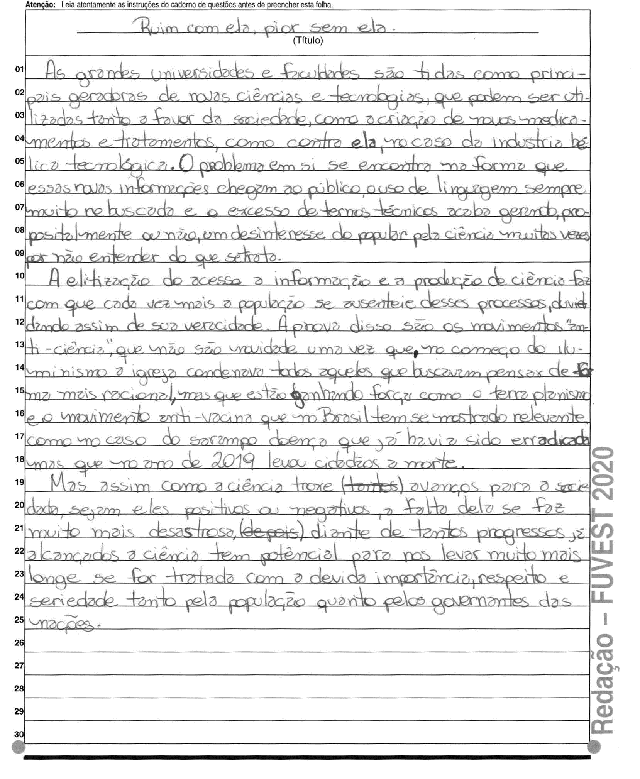 Atenção: Leia atentamente as instruções do caderno de questões antes de preencher esta folha.
Ruim com ela, pior sem ela.
(Título)
01 As grandes universidades e faculdades são tidas como princi-
02 pais geradoras de novas ciências e tecnologias, que podem ser uti-
03 lizadas tanto a favor da sociedade, como a criação de novos medica-
04 mentos e tratamentos, como contra ela, no caso da industria bé-
05 lica tecnológica. O problema em si se encontra na forma que
06 essas novas informações chegam ao público, o uso de linguagem sempre
07 muito rebuscada e o excesso de termos técnicos acaba gerando, pro-
08 positalmente ou não, um desinteresse do popular pela ciência muitas vezes
09 por não entender do que se trata.
10 A elitização do acesso a informação e a produção de ciência faz
11 com que cada vez mais a população se ausenteie desses processos, duvi-
12 dando assim de sua veracidade. A prova disso são os movimentos "an-
13 ti-ciência", que não são novidade uma vez que, no começo do ilu-
14 minismo a igreja condenava todos aqueles que buscavam pensar de for-
15 ma mais racional, mas que estão ganhando força como o terra planismo
16 e o movimento anti-vacina que no Brasil tem se mostrado relevante
17 como no caso do sarampo doença que já havia sido erradicada
18 mas que no ano de 2019 levou cidadãos a morte.
19 Mas assim como a ciência trouxe (tantos) avanços para a socie-
20 dade, sejam eles positivos ou negativos, a falta dela se faz
21 muito mais desastrosa, (depois) diante de tantos progressos já
22 alcançados a ciência tem potêncial para nos levar muito mais
23 longe se for tratada com a devida importância, respeito e
24 seriedade tanto pela população quanto pelos governantes das
25 nações.
26
27
28
29
30
Redação – FUVEST 2020